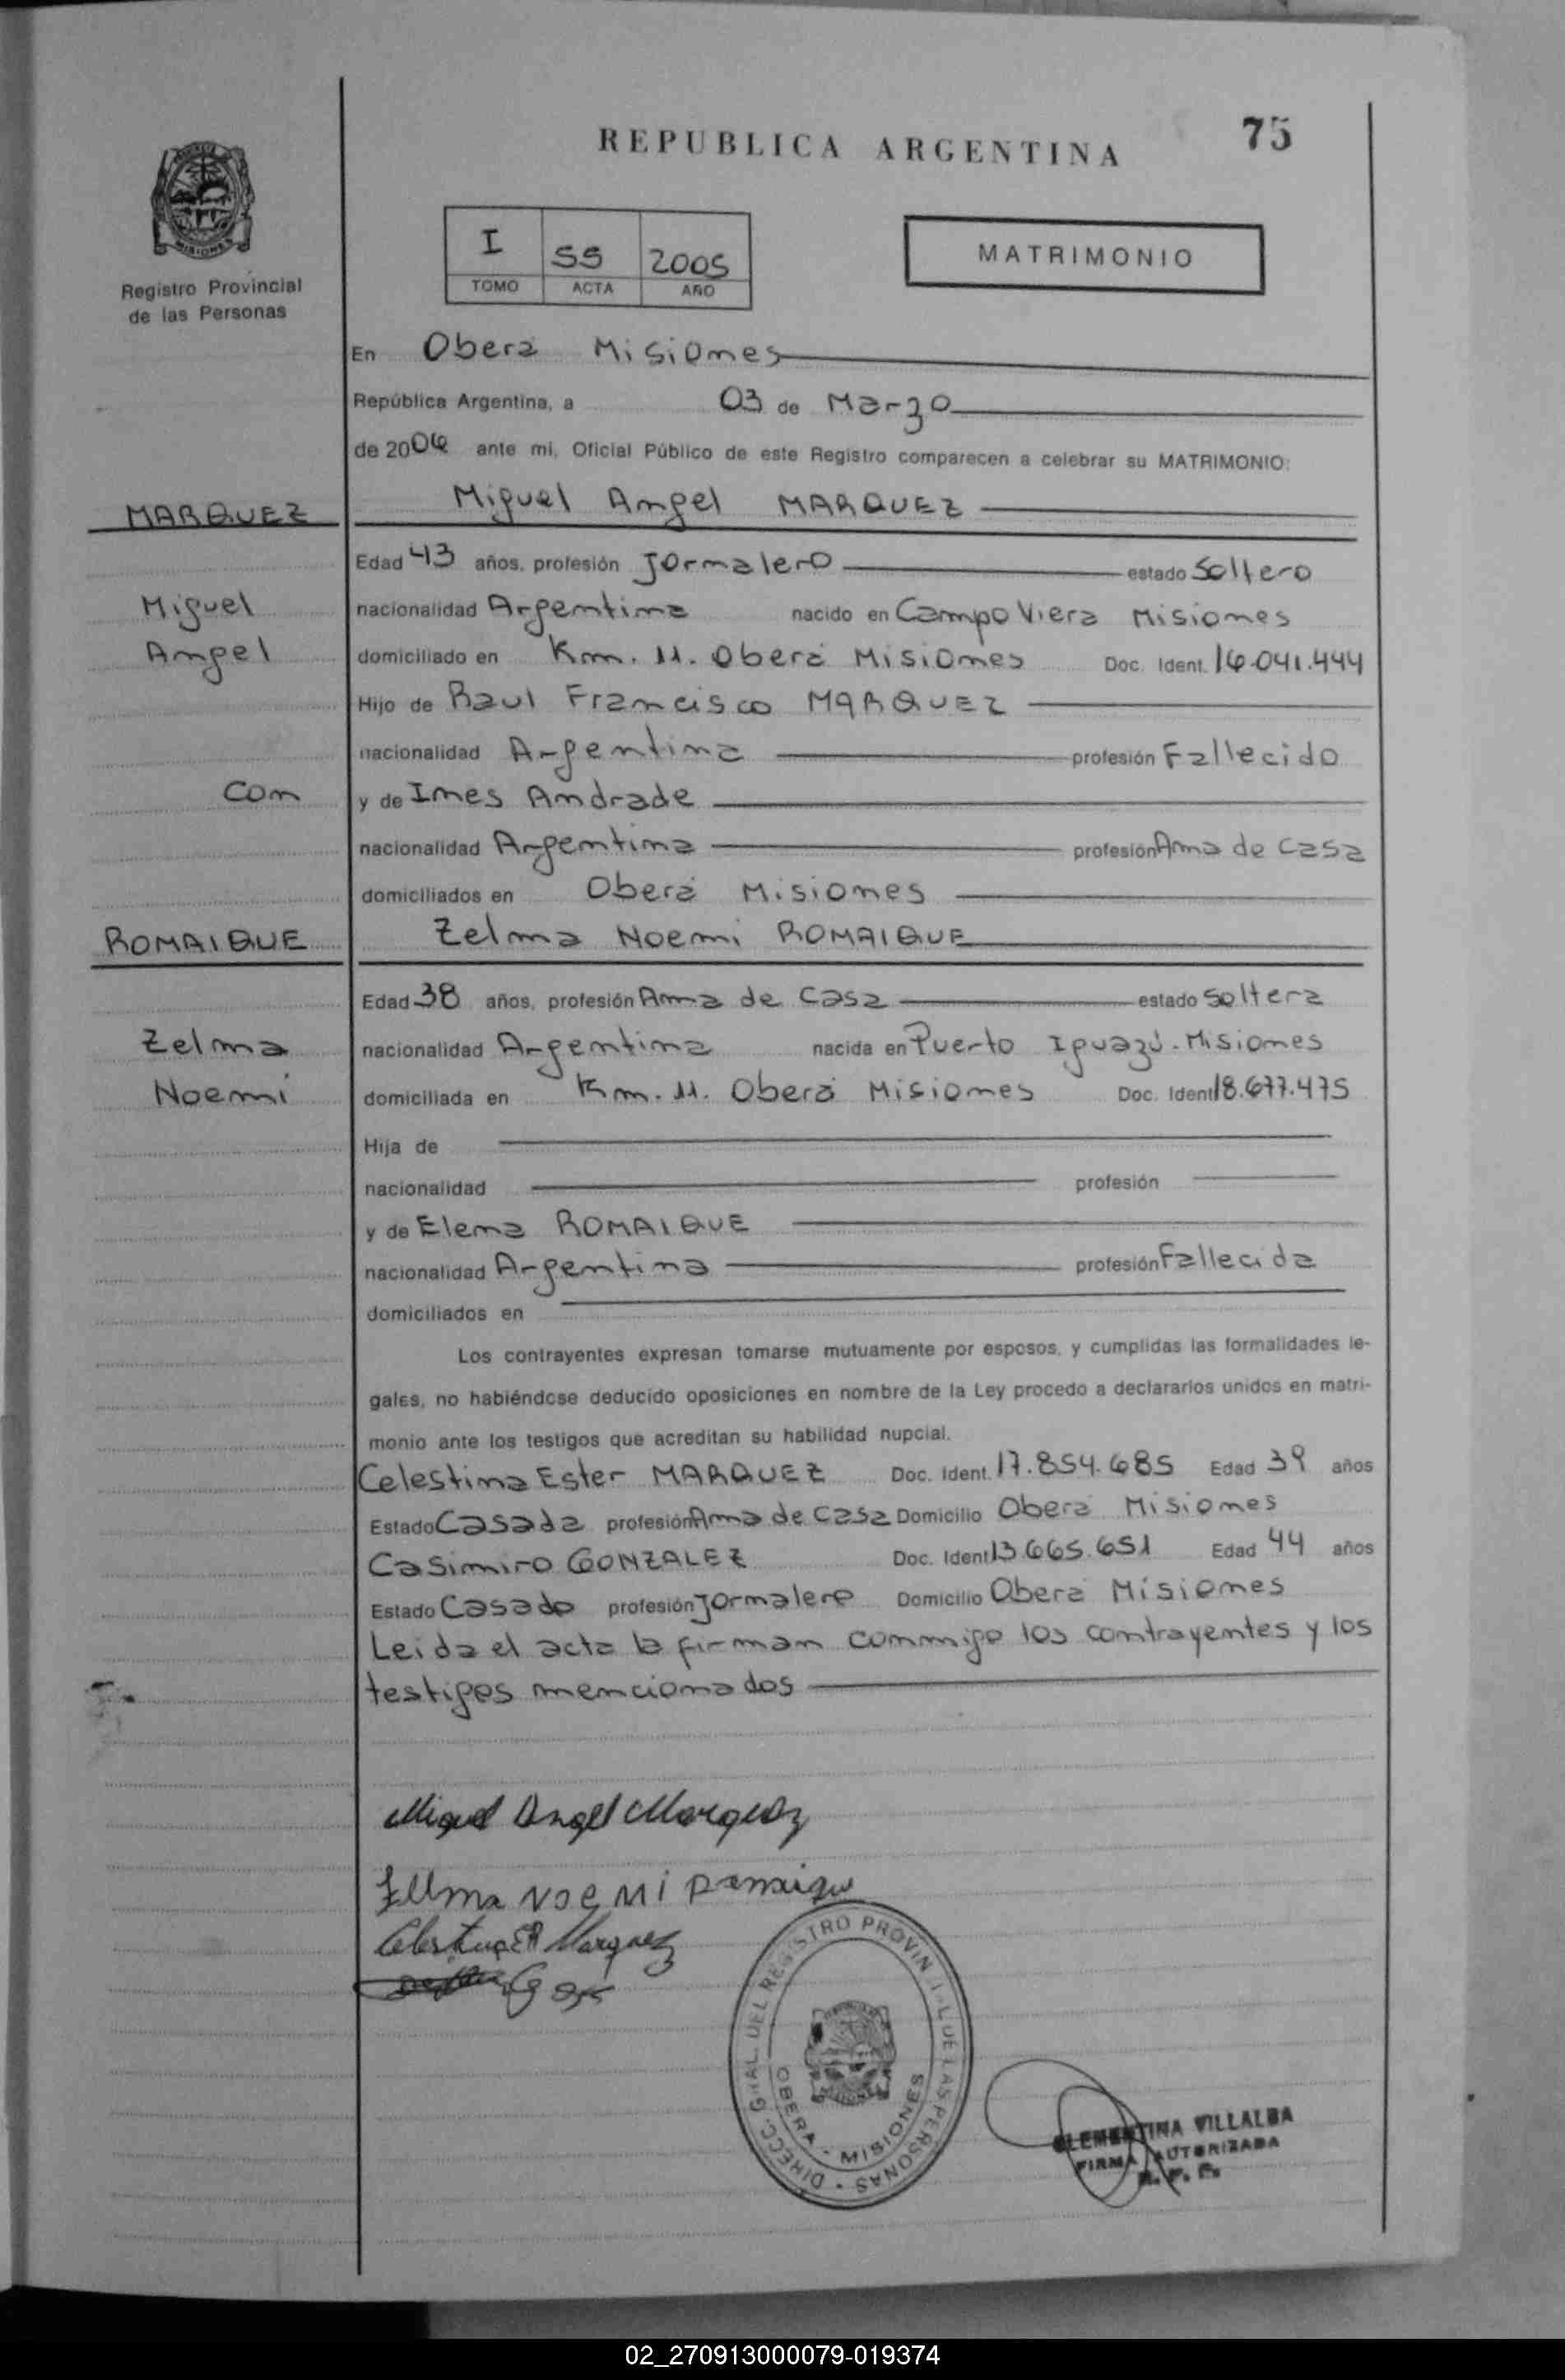 REPUBLICA ARGENTINA
75
MISIONES
Registro Provincial
de las Personas
I 55 2005
TOMO ACTA AÑO
MATRIMONIO
En Obera Misiones
República Argentina, a 03 de Marzo
de 2006 ante mi, Oficial Público de este Registro comparecen a celebrar su MATRIMONIO:
MARQUEZ
Miguel Angel MARQUEZ
Edad 43 años, profesión Jornalero estado Soltero
Miguel
nacionalidad Argentina nacido en Campo Viera Misiones
Angel
domiciliado en Km. 11. Oberá Misiones Doc. Ident. 16.041.444
Hijo de Raul Francisco MARQUEZ
nacionalidad Argentina profesión Fallecido
con
y de Ines Andrade
nacionalidad Argentina profesión Ama de Casa
domiciliados en Oberá Misiones
ROMAIQUE
Zelma Noemi ROMAIQUE
Edad 38 años, profesión Ama de Casa estado Soltera
Zelma
nacionalidad Argentina nacida en Puerto Iguazú - Misiones
Noemi
domiciliada en Km. 11. Oberá Misiones Doc. Ident. 18.677.475
Hija de
nacionalidad profesión
y de Elena ROMAIQUE
nacionalidad Argentina profesión Fallecida
domiciliados en
Los contrayentes expresan tomarse mutuamente por esposos, y cumplidas las formalidades le-
gales, no habiéndose deducido oposiciones en nombre de la Ley procedo a declararlos unidos en matri-
monio ante los testigos que acreditan su habilidad nupcial.
Celestina Ester MARQUEZ Doc. Ident. 17.854.685 Edad 39 años
Estado Casada profesión Ama de Casa Domicilio Obera Misiones
Casimiro GONZALEZ Doc. Ident. 13.665.651 Edad 44 años
Estado Casado profesión Jornalero Domicilio Obera Misiones
Leida el acta la firman conmigo los contrayentes y los
testigos mencionados
Miguel Angel Marquez
Zelma NOEMI Romaique
Celestina E Marquez
DIRECC. GRAL. DEL REGISTRO PROVINCIAL DE LAS PERSONAS
OBERA - MISIONES
CLEMENTINA VILLALBA
FIRMA AUTORIZADA
R. P. P.
02_270913000079-019374